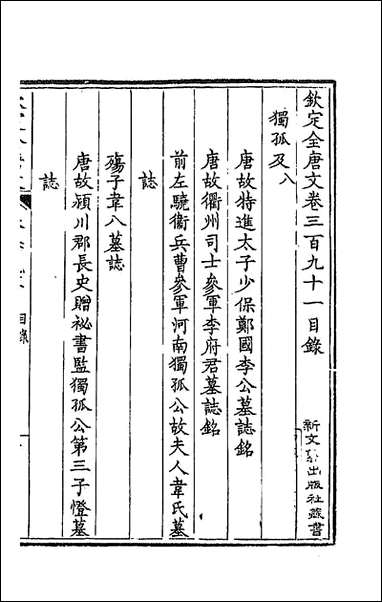 欽定全唐文卷三百九十一目錄
獨孤及八
唐故特進太子少保鄭國李公墓誌銘
唐故衢州司士參軍李府君墓誌銘
前左驍衛兵曹參軍河南獨孤公故夫人韋氏墓
誌
殤子韋八墓誌
唐故潁川郡長史贈祕書監獨孤公第三子憕墓
誌
目錄
新文出版社藏書